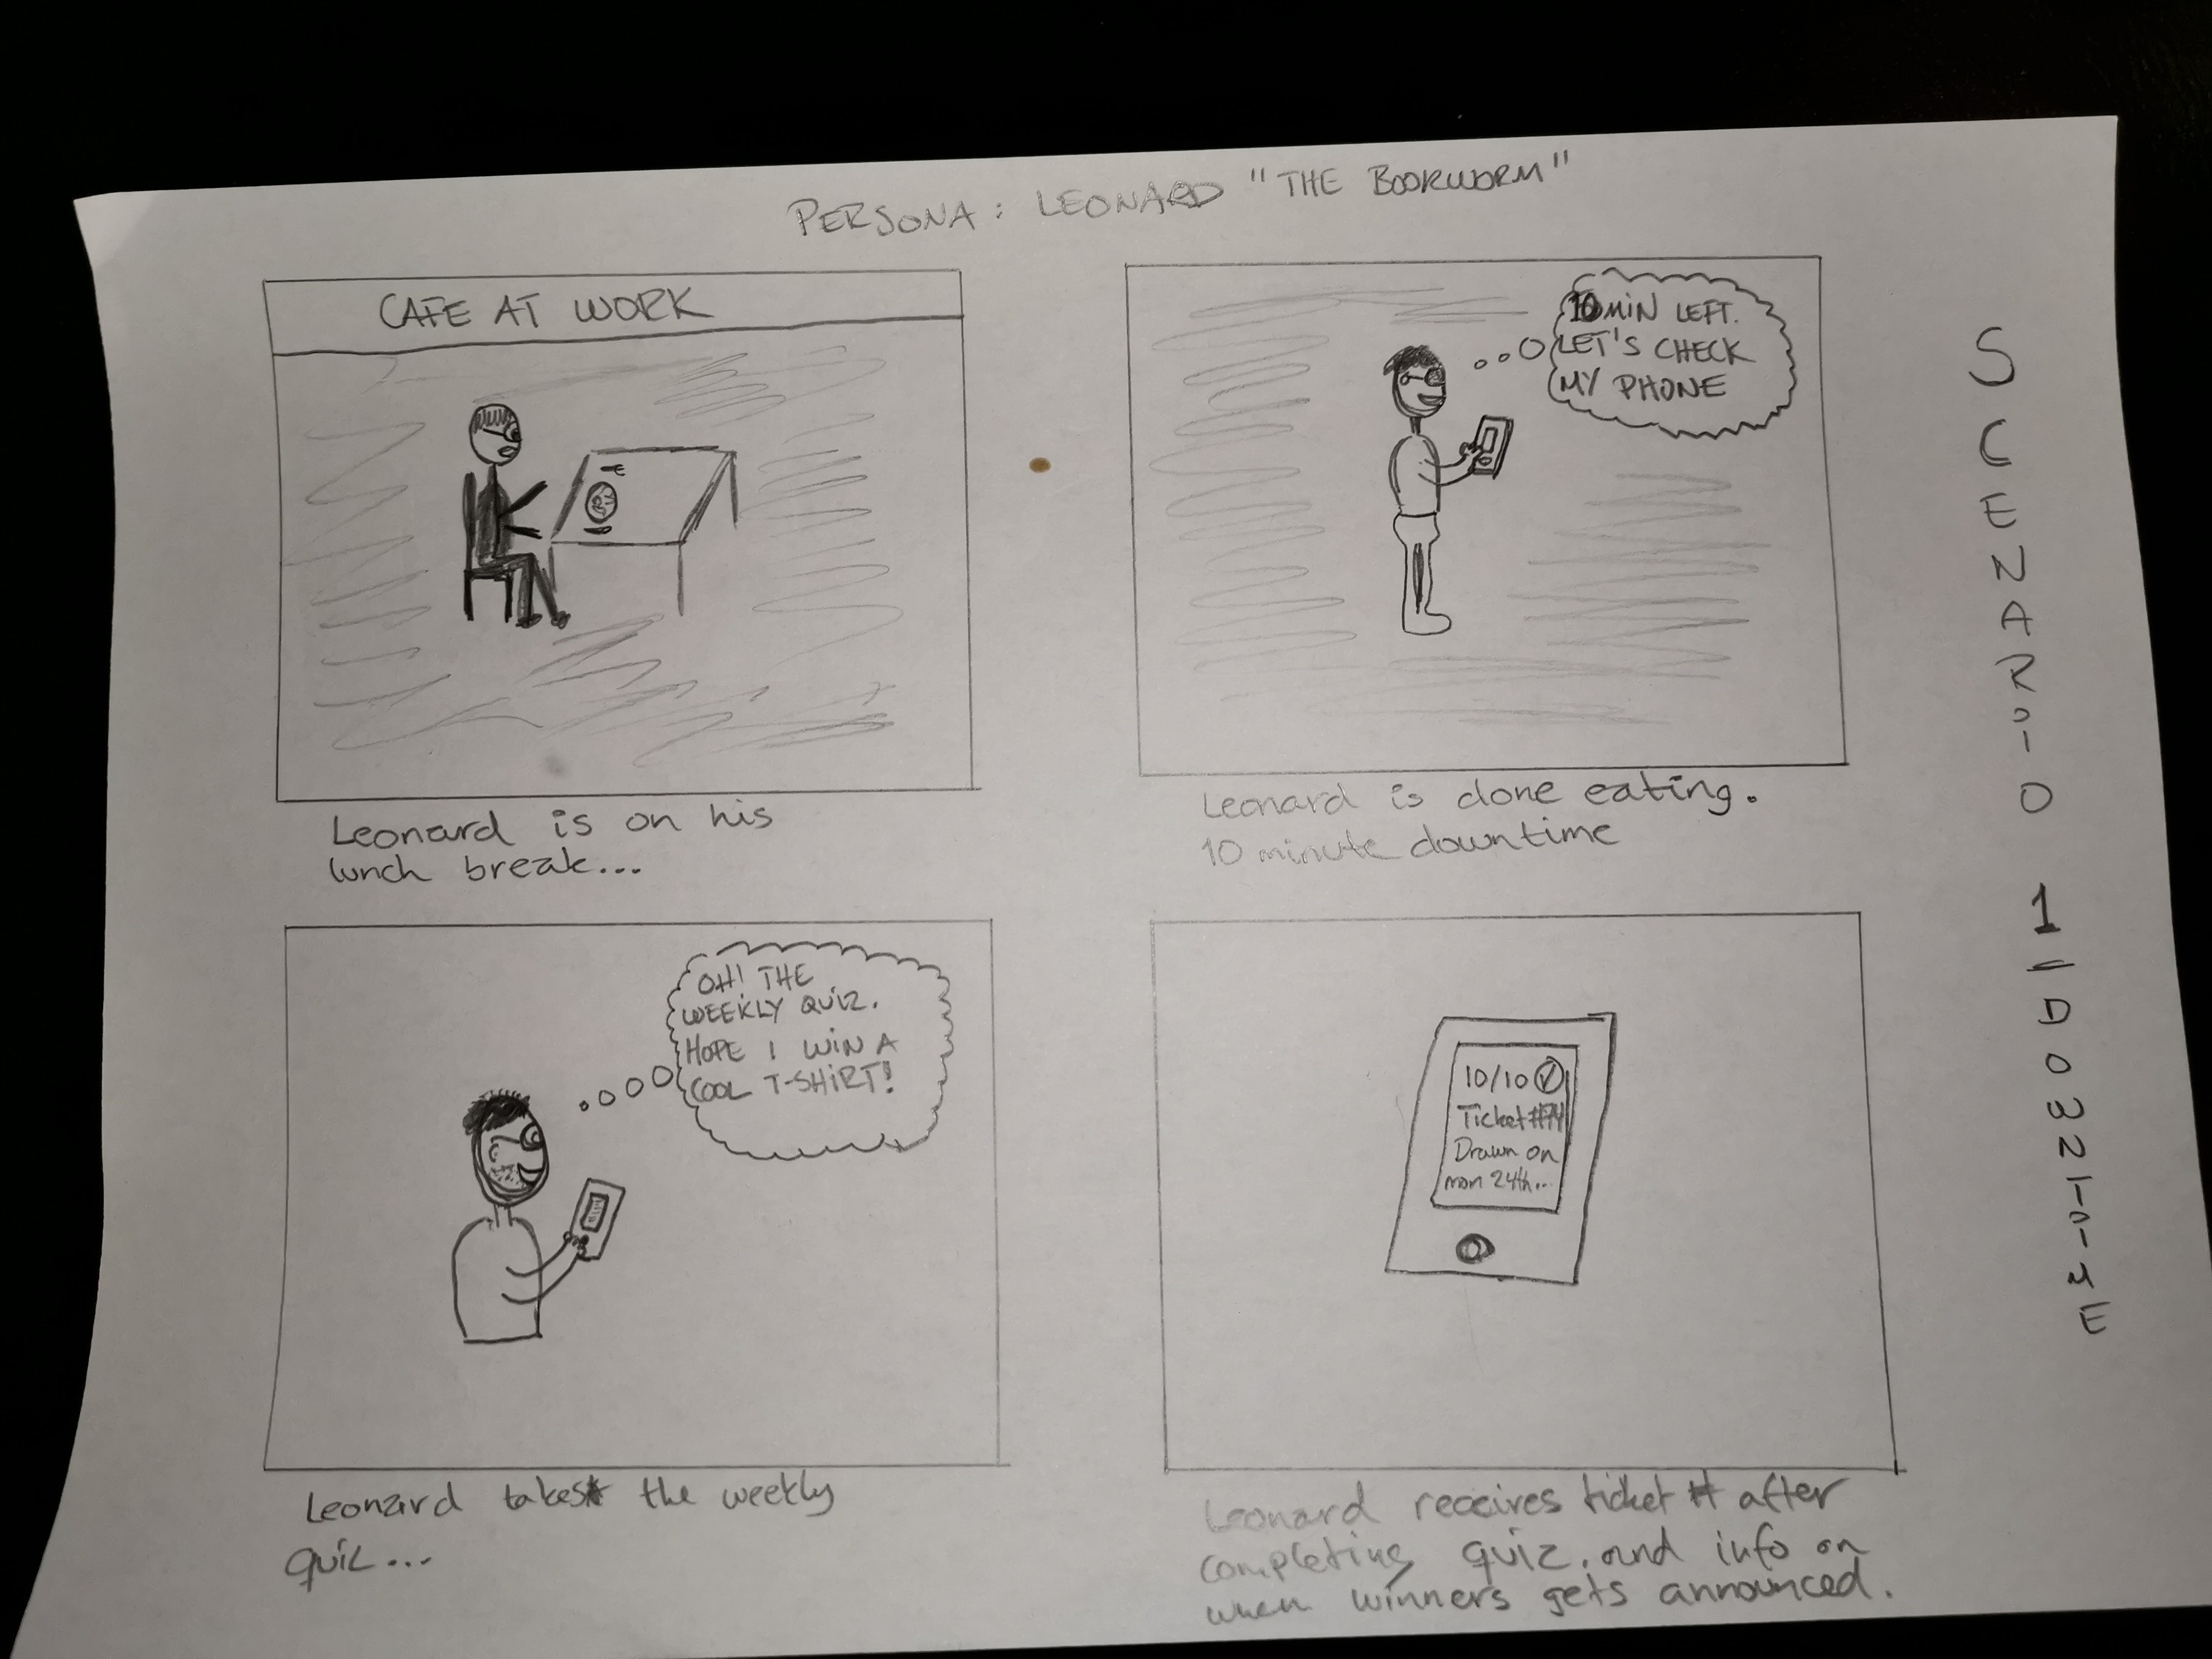 PERSONA: LEONARD "THE BOOKWORM"
CAFE AT WORK
Leonard is on his
lunch break...
10 MIN LEFT.
LET'S CHECK
MY PHONE
Leonard is done eating.
10 minute downtime
OH! THE
WEEKLY QUIZ.
HOPE I WIN A
COOL T-SHIRT!
Leonard takes the weekly
quiz...
10/10
Ticket
Drawn on
mon 24th...
Leonard receives ticket # after
completing quiz, and info on
when winners gets announced.
SCENARIO 1 // DOWNTIME